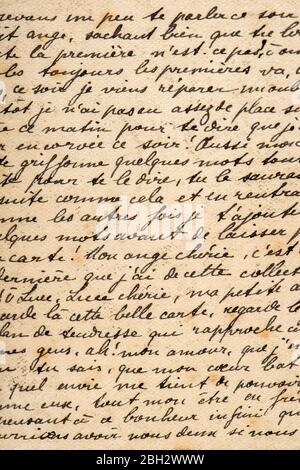 devans un peu te parler ce son
it ange, sachant bien que tu
te la première n'est-ce pas,
les toujours les premières va,
ce soir je viens réparer mon
tôt je n'ai pas eu assez de place
e ce matin pour te dire que je
r en corvée ce soir! Aussi mon
te griffonne quelques mots tou
ite pour te le dire, tu le sauras
suite comme cela et en rentra
mme les autres fois je t'ajoute
elques mots avant de laisser p
a carte. Mon ange chérie, c'est
dernière que j'ai de cette collect
Luce, Luce chérie, ma petite a
arde là cette belle carte, regarde l
lan de tendresse qui rapproche c
es gens, ah! mon amour, que j'
tu sais, que mon cœur bat
quel envie me tient de pouvoir
mme eux, tout mon être en fré
pensant à ce bonheur infini qu
ourrions avoir nous deux si nous
alamy
alamy
Image ID: 2B2HWWW
www.alamy.com